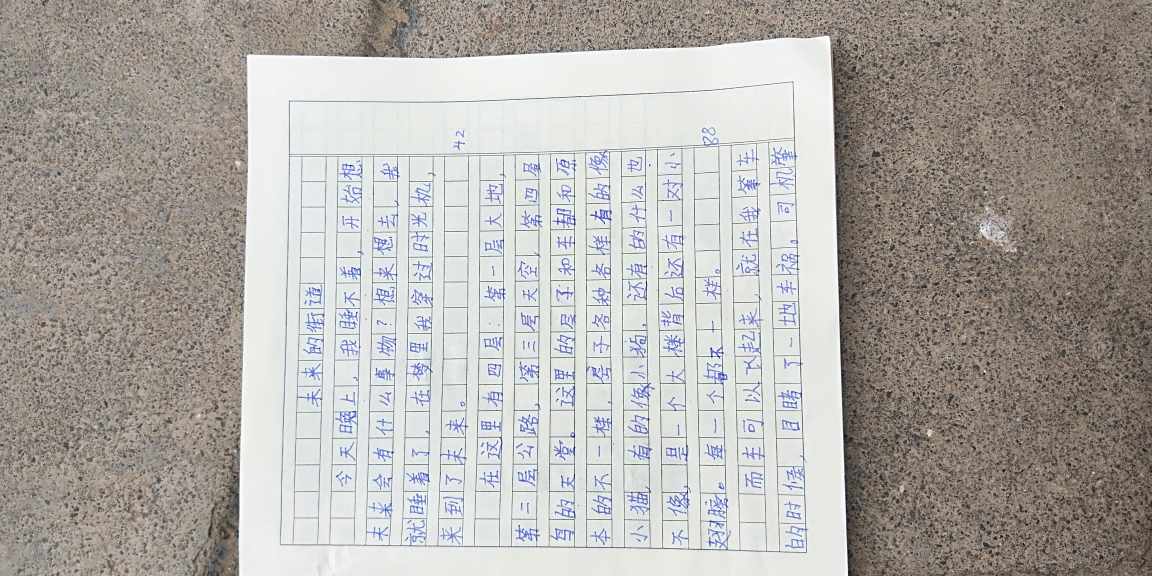 未来的街道
今天晚上，我睡不着，开始想
未来会有什么事物？想来想去，我
就睡着了，在梦里我穿过时光机，
来到了未来。
42
在这里有四层：第一层大地，
第二层公路，第三层天空，第四层
鸟的天堂。这里的房子和车都和原
本的不一样，房子各种各样有的像
小猫，有的像小狗，还有的什么也
不像，是一个大楼背后还有一对小
翅膀。每一个都不一样。
88
而车可以飞起来，就在我等车
的时候，目睹了一地车祸。司机肇